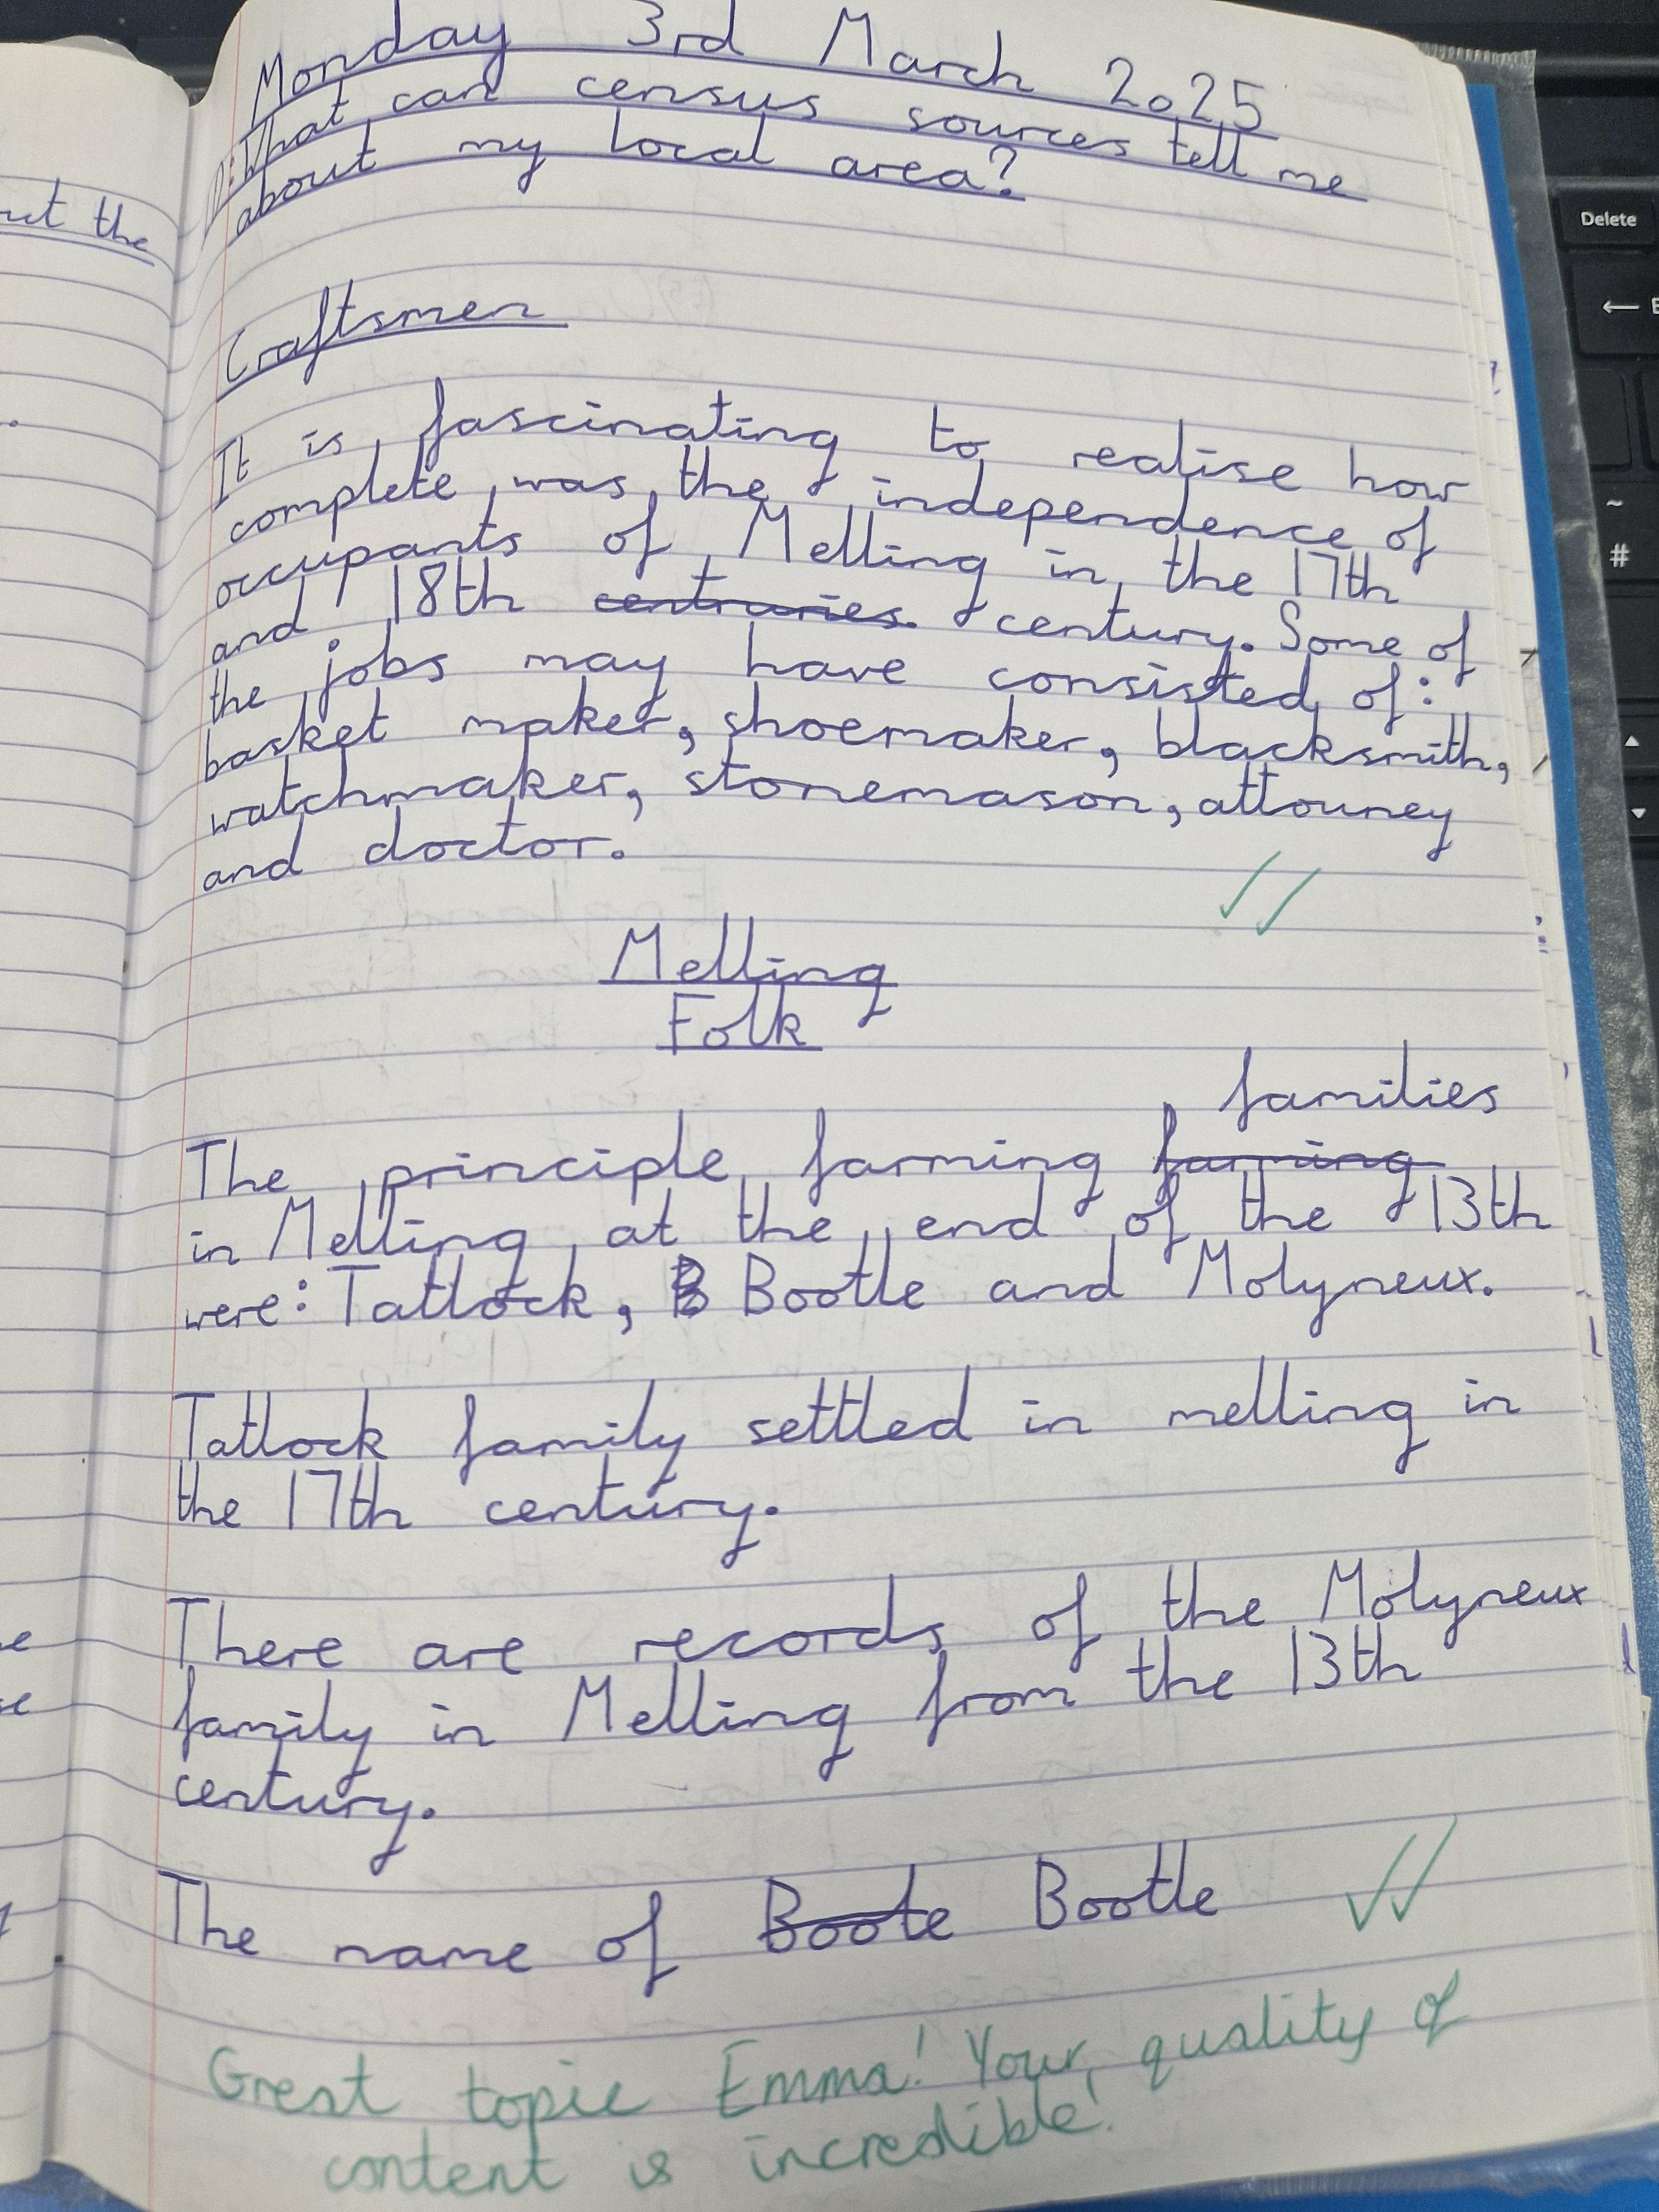 Monday 3rd March 2025
LO: What can census sources tell me
about my local area?
Craftsmen
It is fascinating to realise how
complete was the independence of
occupants of Melling in the 17th
and 18th centruries. century. Some of
the jobs may have consisted of:
basket maker, shoemaker, blacksmith,
watchmaker, stonemason, attouney
and doctor.
Melling
Folk
families
The principle farming farming
in Melling at the end of the 13th
were: Tatlock, B Bootle and Molyneux.
Tatlock family settled in melling in
the 17th century.
There are records of the Molyneux
family in Melling from the 13th
century.
The name of Boote Bootle
Great topic Emma! Your quality of
content is incredible!
ut the
Delete
~
#